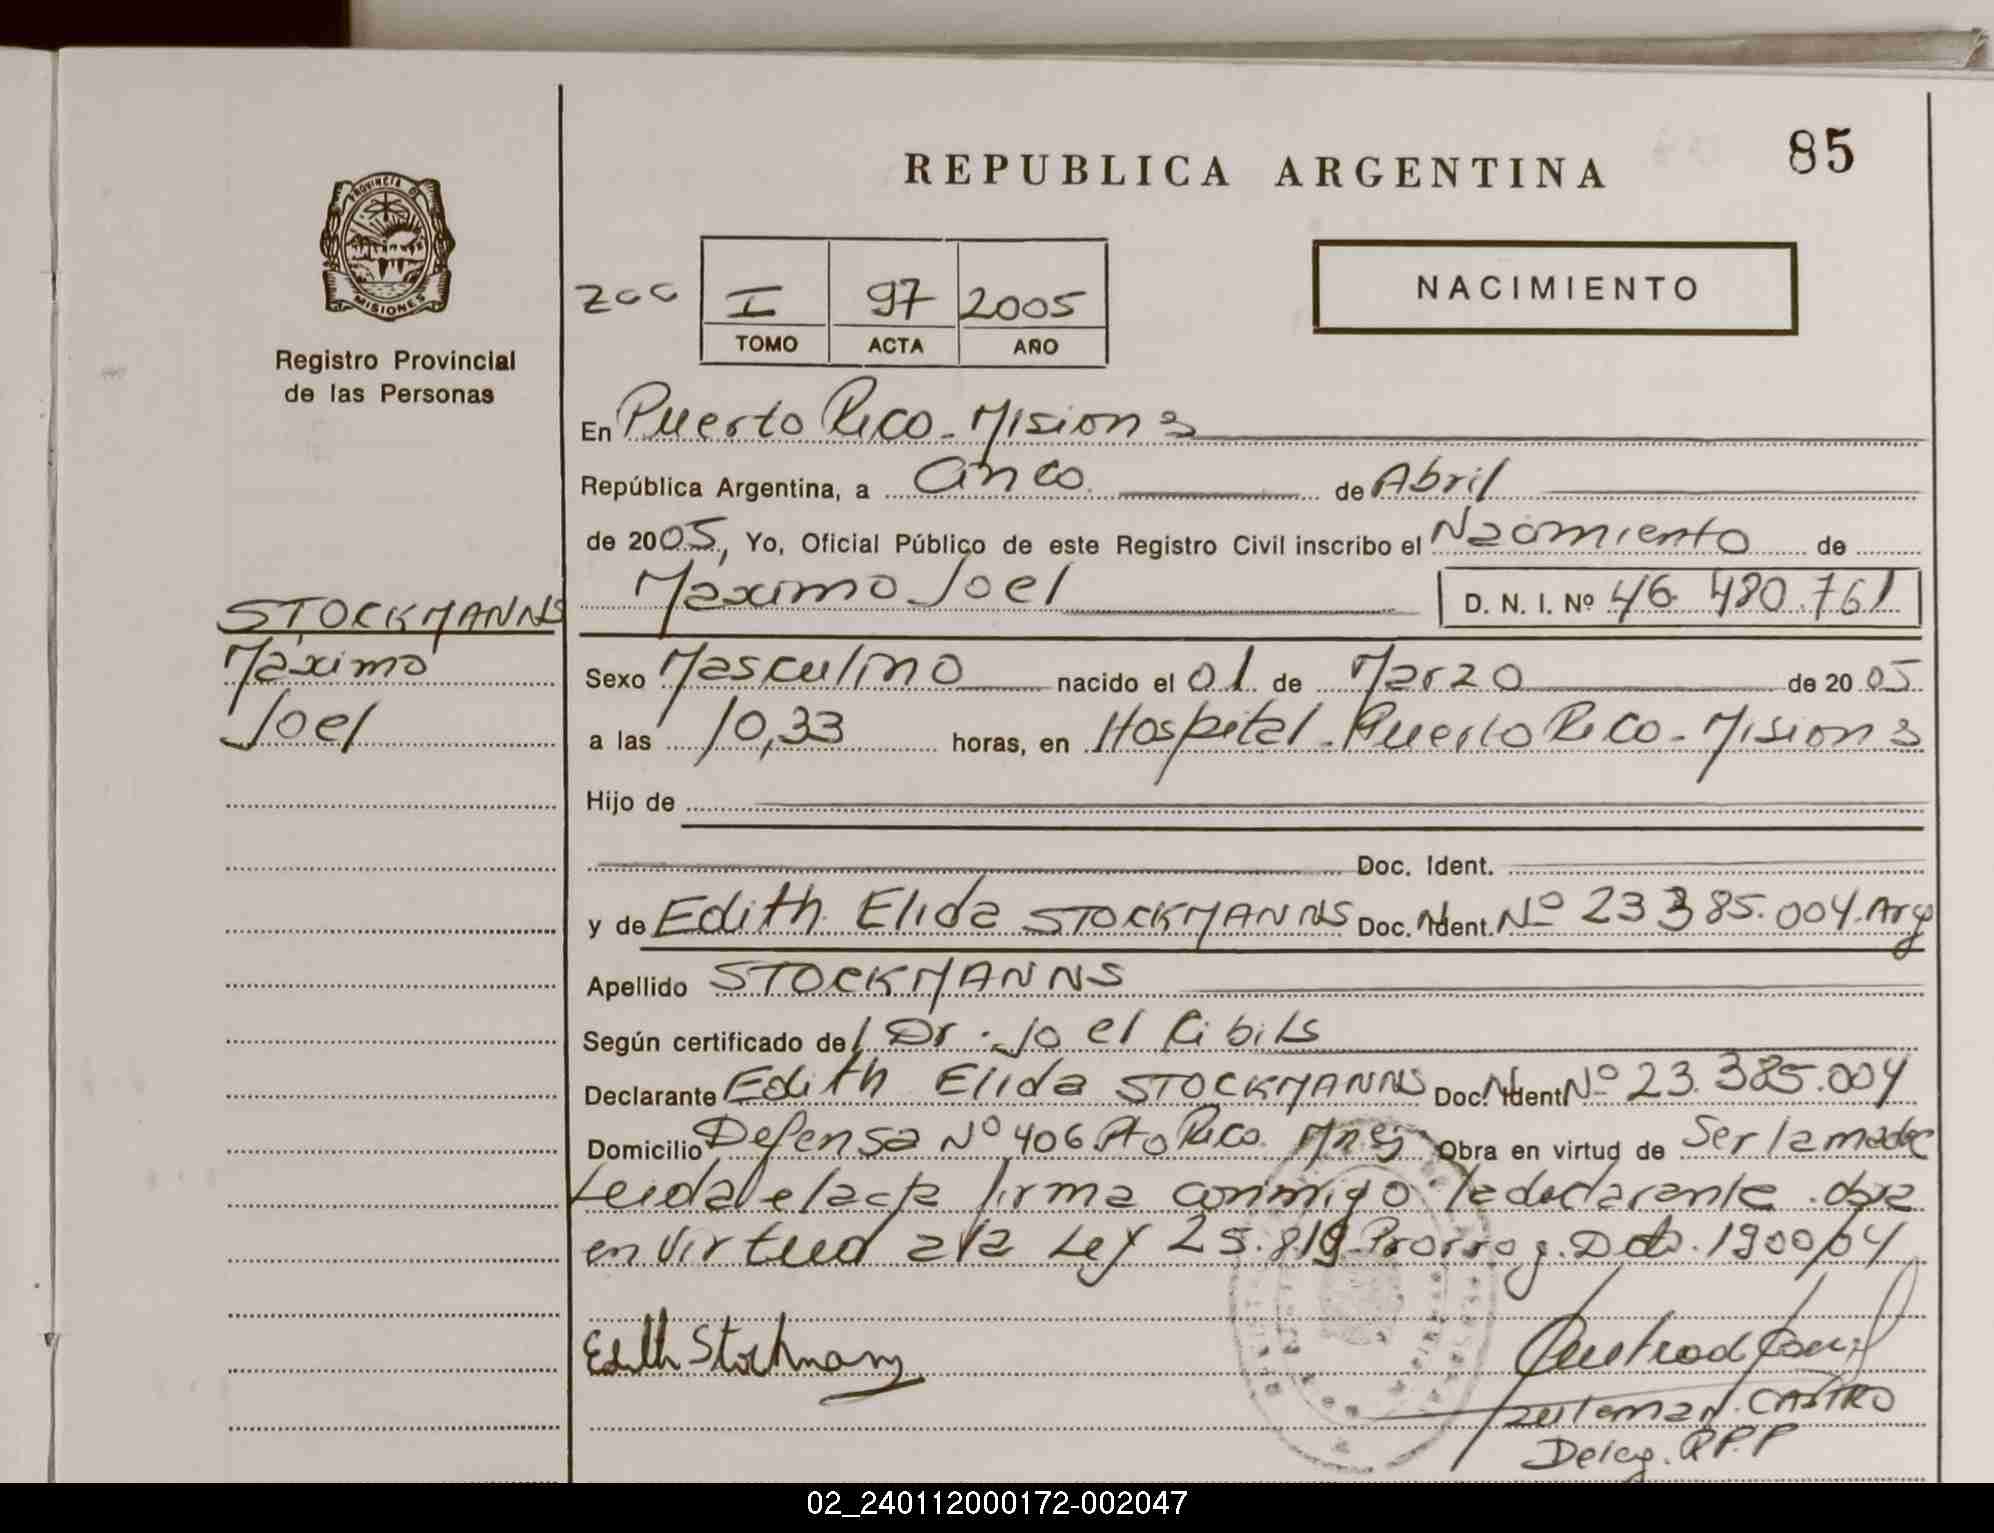 REPUBLICA ARGENTINA
85
PROVINCIA D
MISIONES
Registro Provincial
de las Personas
NACIMIENTO
I 97 2005
TOMO ACTA AÑO
En Puerto Rico - Misiones
República Argentina, a Cinco de Abril
de 2005, Yo, Oficial Público de este Registro Civil inscribo el Nacimiento de
Máximo Joel D. N. I. Nº 46.480.761
STOCKMANNS
Máximo
Joel
Sexo Masculino nacido el 01 de Marzo de 2005
a las 10,33 horas, en Hospital - Puerto Rico - Misiones
Hijo de
Doc. Ident.
y de Edith Elida STOCKMANNS Doc. Ident. Nº 23 385.004. Arg
Apellido STOCKMANNS
Según certificado del Dr. Joel Ribils
Declarante Edith Elida STOCKMANNS Doc. Ident Nº 23.385.004
Domicilio Defensa Nº 406 Pto Rico. Mnes Obra en virtud de Ser la madre
Leida el acta firma conmigo la declarante. obra
en virtud a la Ley 25.819 Prorrog. Dto. 1900/04
Edith Stockmanns
CASTRO
Deleg. R.P.P
02_240112000172-002047